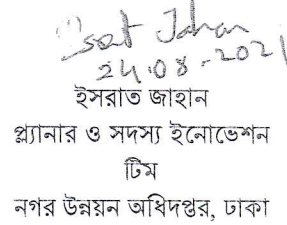 Israt Jahan
24.08-2021
ইসরাত জাহান
প্ল্যানার ও সদস্য ইনোভেশন
টিম
নগর উন্নয়ন অধিদপ্তর, ঢাকা